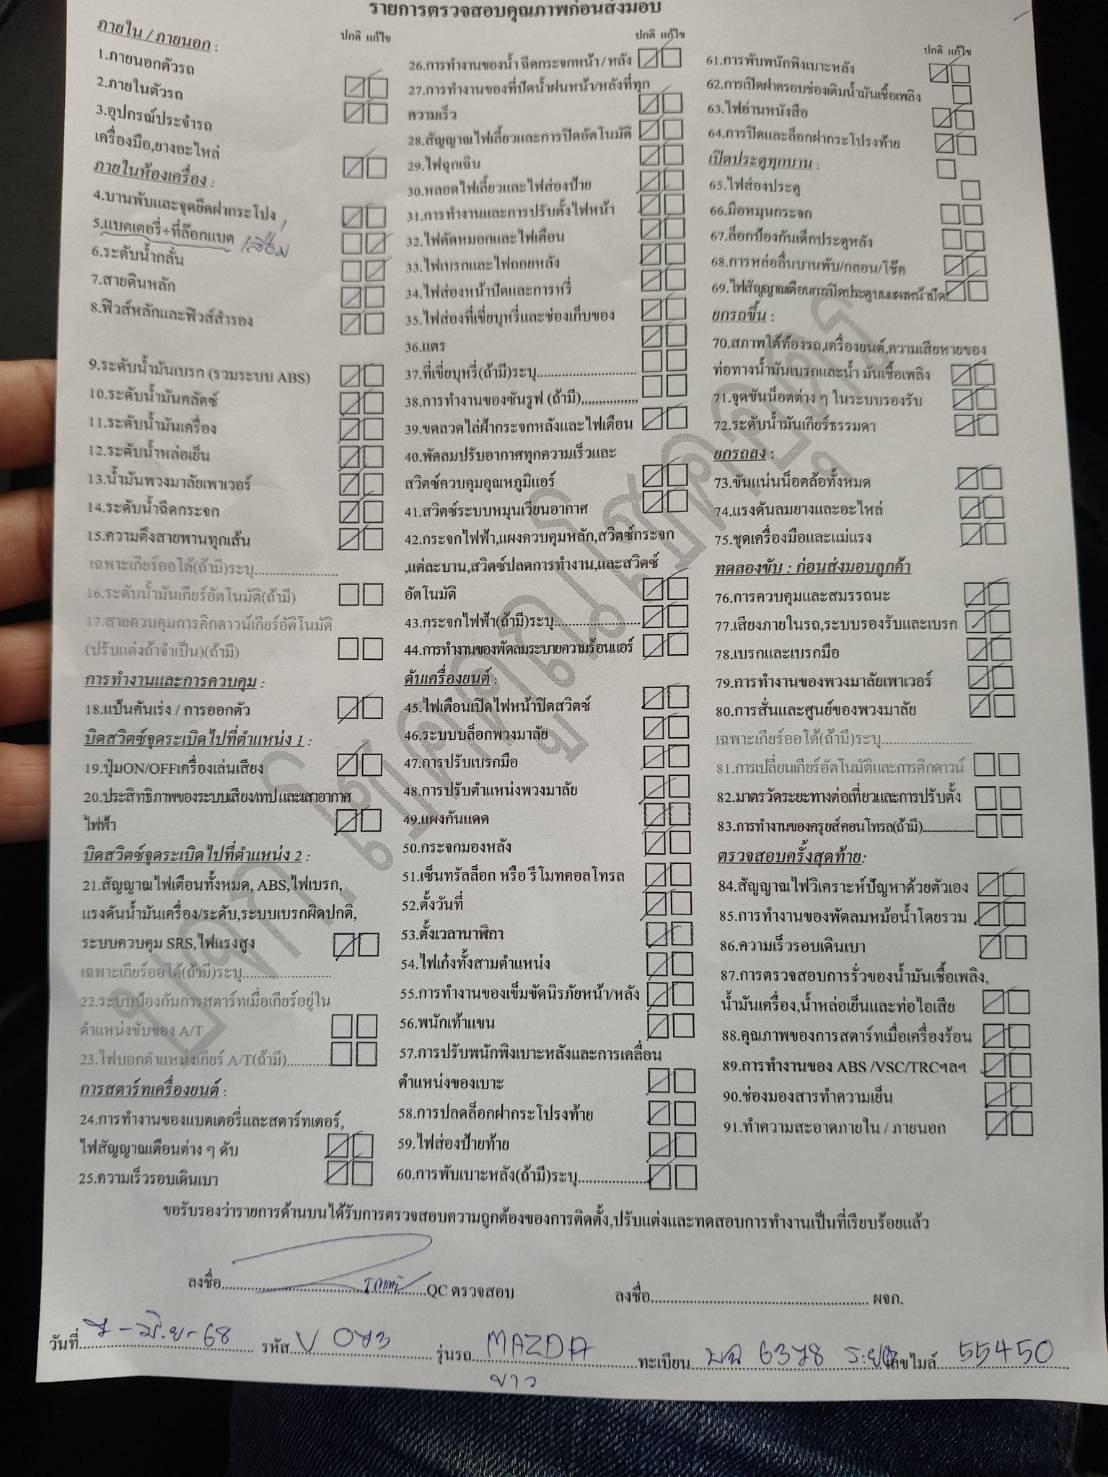 รายการตรวจสอบคุณภาพก่อนส่งมอบ
ภายใน / ภายนอก :
ปกติ แก้ไข
1.ภายนอกตัวรถ
2.ภายในตัวรถ
3.อุปกรณ์ประจำรถ
เครื่องมือ,ยางอะไหล่
ภายในห้องเครื่อง :
4.บานพับและจุดยึดฝากระโปง
5.แบตเตอรี่+ที่ล๊อกแบต เสื่อม
6.ระดับน้ำกลั่น
7.สายดินหลัก
8.ฟิวส์หลักและฟิวส์สำรอง
9.ระดับน้ำมันเบรก (รวมระบบ ABS)
10.ระดับน้ำมันคลัตช์
11.ระดับน้ำมันเครื่อง
12.ระดับน้ำหล่อเย็น
13.น้ำมันพวงมาลัยเพาเวอร์
14.ระดับน้ำฉีดกระจก
15.ความตึงสายพานทุกเส้น
เฉพาะเกียร์ออโต้(ถ้ามี)ระบุ....................
16.ระดับน้ำมันเกียร์อัตโนมัติ(ถ้ามี)
17.สายควบคุมการคิกดาวน์เกียร์อัติโนมัติ
(ปรับแต่งถ้าจำเป็น)(ถ้ามี)
การทำงานและการควบคุม :
18.แป้นคันเร่ง / การออกตัว
บิดสวิตช์จูดระเบิดไปที่ตำแหน่ง 1 :
19.ปุ่มON/OFFเครื่องเล่นเสียง
20.ประสิทธิภาพของระบบเสียง/เทป และเสาอากาศ
ไฟฟ้า
บิดสวิตซ์จูดระเบิดไปที่ตำแหน่ง 2 :
21.สัญญาณไฟเตือนทั้งหมด, ABS,ไฟเบรก,
แรงดันน้ำมันเครื่อง/ระดับ,ระบบเบรกผิดปกติ,
ระบบควบคุม SRS,ไฟแรงสูง
เฉพาะเกียร์ออโต้(ถ้ามี)ระบุ....................
22.ระบบป้องกันการสตาร์ทเมื่อเกียร์อยู่ใน
ตำแหน่งขับของ A/T
23.ไฟบอกตำแหน่งเกียร์ A/T(ถ้ามี)..........
การสตาร์ทเครื่องยนต์ :
24.การทำงานของแบตเตอรี่และสตาร์ทเตอร์,
ไฟสัญญาณเตือนต่าง ๆ ดับ
25.ความเร็วรอบเดินเบา
ปกติ แก้ไข
26.การทำงานของน้ำ ฉีดกระจกหน้า / หลัง
27.การทำงานของที่ปัดน้ำฝนหน้า/หลังที่ทุก
ความเร็ว
28.สัญญาณไฟเลี้ยวและการปิดอัตโนมัติ
29.ไฟฉุกเฉิน
30.หลอดไฟเลี้ยวและไฟส่องป้าย
31.การทำงานและการปรับตั้งไฟหน้า
32.ไฟตัดหมอกและไฟเตือน
33.ไฟเบรกและไฟถอยหลัง
34.ไฟส่องหน้าปัดและการหรี่
35.ไฟส่องที่เขี่ยบุหรี่และช่องเก็บของ
36.แตร
37.ที่เขี่ยบุหรี่(ถ้ามี)ระบุ....................
38.การทำงานของซันรูฟ (ถ้ามี),,,,,,,,,,,,,,,
39.ขดลวดไล่ฝ้ากระจกหลังและไฟเตือน
40.พัดลมปรับอากาศทุกความเร็วและ
สวิตซ์ควบคุมอุณหภูมิแอร์
41.สวิตซ์ระบบหมุนเวียนอากาศ
42.กระจกไฟฟ้า,แผงควบคุมหลัก,สวิตซ์กระจก
,แต่ละบาน,สวิตซ์ปลดการทำงาน,และสวิตซ์
อัตโนมัติ
43.กระจกไฟฟ้า(ถ้ามี)ระบุ....................
44.การทำงานของพัดลมระบายความร้อนแอร์
ดับเครื่องยนต์ :
45.ไฟเตือนเปิดไฟหน้าปิดสวิตซ์
46.ระบบบล็อกพวงมาลัย
47.การปรับเบรกมือ
48.การปรับตำแหน่งพวงมาลัย
49.แผงกันแดด
50.กระจกมองหลัง
51.เซ็นทรัลล็อก หรือ รีโมทคอลโทรล
52.ตั้งวันที่
53.ตั้งเวลานาฬิกา
54.ไฟเก๋งทั้งสามตำแหน่ง
55.การทำงานของเข็มขัดนิรภัยหน้า/หลัง
56.พนักเท้าแขน
57.การปรับพนักพิงเบาะหลังและการเคลื่อน
ตำแหน่งของเบาะ
58.การปลดล็อกฝากระโปรงท้าย
59.ไฟส่องป้ายท้าย
60.การพับเบาะหลัง(ถ้ามี)ระบุ....................
ปกติ แก้ไข
61.การพับพนักพิงเบาะหลัง
62.การเปิดฝาครอบช่องเติมน้ำมันเชื้อเพลิง
63.ไฟอ่านหนังสือ
64.การปิดและล็อกฝากระโปรงท้าย
เปิดประตูทุกบาน :
65.ไฟส่องประตู
66.มือหมุนกระจก
67.ล็อกป้องกันเด็กประตูหลัง
68.การหล่อลื่นบานพับ/กลอน/โช๊ค
69.ไฟสัญญาณเตือนการปิดประตูบนแผงหน้าปัด
ยกรถขึ้น :
70.สภาพใต้ท้องรถ,เครื่องยนต์,ความเสียหายของ
ท่อทางน้ำมันเบรกและน้ำ มันเชื้อเพลิง
71.จุดขันน็อตต่าง ๆ ในระบบรองรับ
72.ระดับน้ำมันเกียร์ธรรมดา
ยกรถลง :
73.ขันแน่นน็อตล้อทั้งหมด
74.แรงดันลมยางและอะไหล่
75.ชุดเครื่องมือและแม่แรง
ทดลองขับ : ก่อนส่งมอบลูกค้า
76.การควบคุมและสมรรถนะ
77.เสียงภายในรถ,ระบบรองรับและเบรก
78.เบรกและเบรกมือ
79.การทำงานของพวงมาลัยเพาเวอร์
80.การสั่นและศูนย์ของพวงมาลัย
เฉพาะเกียร์ออโต้(ถ้ามี)ระบุ....................
81.การเปลี่ยนเกียร์อัตโนมัติและการคิกดาวน์
82.มาตรวัดระยะทางต่อเที่ยวและการปรับตั้ง
83.การทำงานของครุยส์คอนโทรล(ถ้ามี)...............
ตรวจสอบครั้งสุดท้าย:
84.สัญญาณไฟวิเคราะห์ปัญหาด้วยตัวเอง
85.การทำงานของพัดลมหม้อน้ำโดยรวม
86.ความเร็วรอบเดินเบา
87.การตรวจสอบการรั่วของน้ำมันเชื้อเพลิง,
น้ำมันเครื่อง,น้ำหล่อเย็นและท่อไอเสีย
88.คุณภาพของการสตาร์ทเมื่อเครื่องร้อน
89.การทำงานของ ABS /VSC/TRCฯลฯ
90.ช่องมองสารทำความเย็น
91.ทำความสะอาดภายใน / ภายนอก
ขอรับรองว่ารายการด้านบนได้รับการตรวจสอบความถูกต้องของการติดตั้ง,ปรับแต่งและทดสอบการทำงานเป็นที่เรียบร้อยแล้ว
ลงชื่อ....................QC ตรวจสอบ
ลงชื่อ....................ผจก.
วันที่ 7-มิ.ย-68 รหัส V 073 รุ่นรถ MAZDA ทะเบียน 6378 เลขไมล์ 55450
ขาว